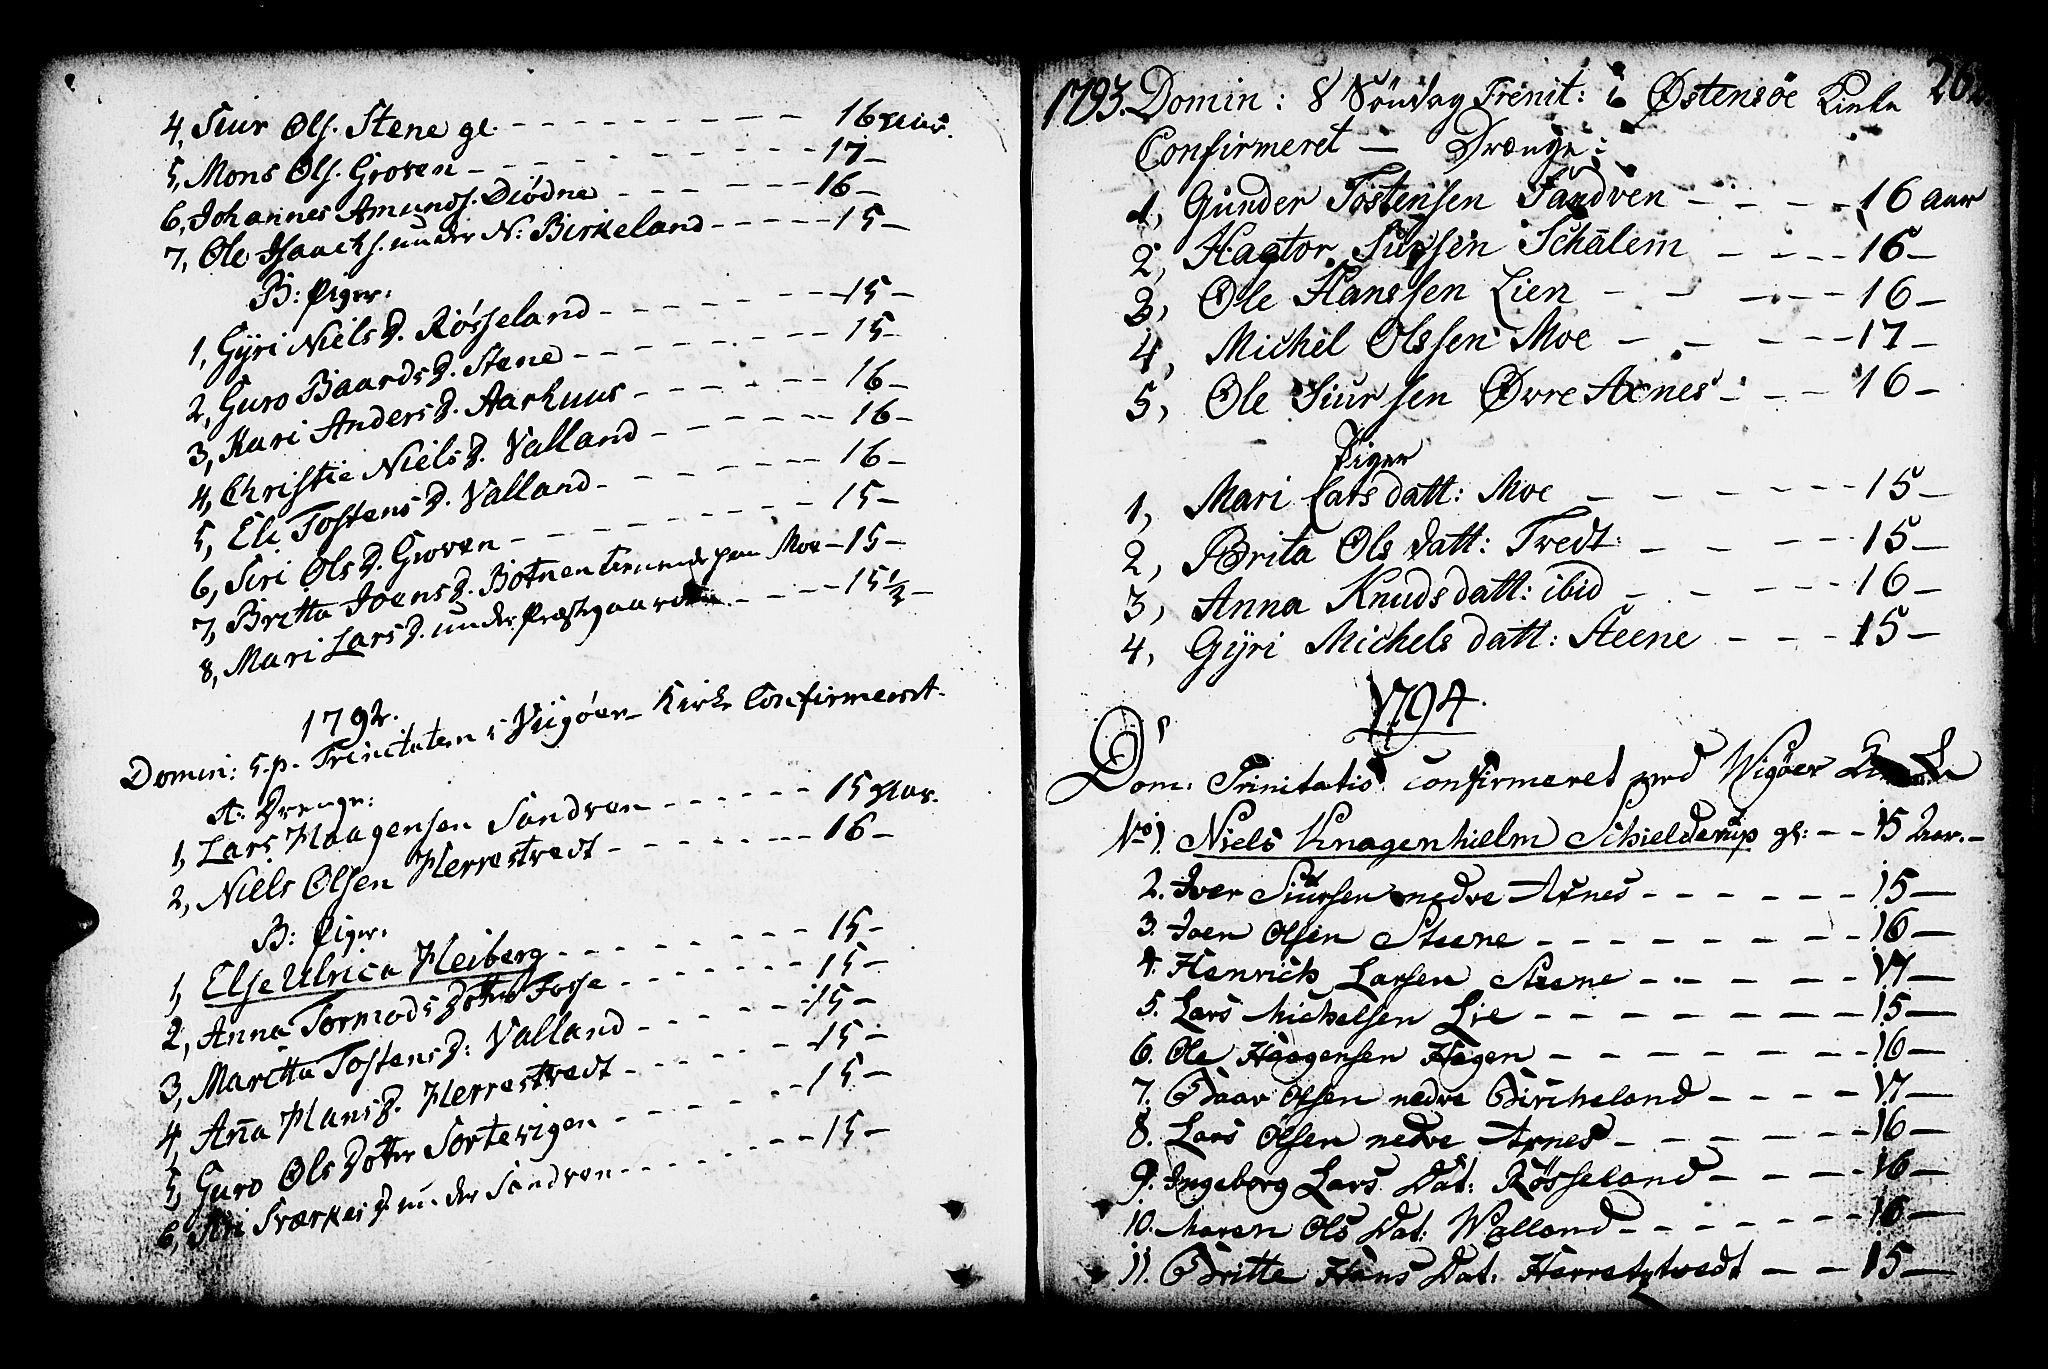 4, Siur Ols. Stene gl. - - - - - - - - - - 16 Aar.
5, Mons Ols. Groven - - - - - - - - - - 17 -
6, Johannes Amunds. Diödne - - - - - - 16 -
7, Ole Isaachs. under N: Birkeland - - - - - 15 -
B: Piger.
1, Gÿri Niels D. Rösseland - - - - - - - - 15 -
2, Guro Baards D. Stene - - - - - - - - - 15 -
3, Kari Anders D. Aarhuus - - - - - - - - 16 -
4, Christie Niels D. Valland - - - - - - - - 16 -
5, Eli Tostens D. Valland - - - - - - - - - 16 -
6, Siri Ols D. Groven - - - - - - - - - - - 15 -
7, Britta Joens D. Botnen tienende paa Moe - 15 -
8, Mari Lars D. under Præstgaarden - - - - 15 1/2 -
1792.
Domin: 5. p. Trinitatem i Viigöer Kirke Confirmeret.
A: Drenge:
1, Lars Haagensen Sandven - - - - - - 15 Aar.
2, Niels Olsen Herrestvedt - - - - - - - - 16 -
B: Piger.
1, Else Ulrica Heiberg - - - - - - - - - - 15 -
2, Anna Tormods Dotter Fosse - - - - - - - 15 -
3, Maritta Tostens D: Valland - - - - - - - 15 -
4, Ana Hans D. Herrestvedt - - - - - - - - 15 -
5, Guro Ols Dotter Tortevigen - - - - - - - 15 -
6, Siri Sværkes D. under Sandven - - - - - - 15 -
262.
1793. Domin: 8 Söndag Trenit: i Östensöe Kirke
Confirmeret - Drenge:
1, Gunder Tostensen Sandven - - - - 16 Aar
2, Hagtor Siursen Schälem - - - - 16 -
3, Ole Hanssen Lien - - - - - 16 -
4, Michel Olssen Moe - - - - - 17 -
5, Ole Siursen Øvre Axnes - - - 16 -
Piger
1, Mari Lars datt: Moe - - - - - - 15 -
2, Brita Ols datt: Tvedt - - - - - 15 -
3, Anna Knuds datt: ibid - - - - - 16 -
4, Gÿri Michels datt: Steene - - - - 15 -
1794.
Dom: Trinitatis confirmeret ved Wigöer
No 1. Niels Knagenhielm Schielderup gl: - - 15 Aar. -
2. Iver Siursen nedre Axnes - - - - - - 15 -
3. Joen Olsen Steene - - - - - - - - - 16 -
4. Henrich Larsen Steene - - - - - - 17 -
5. Lars Michelsen Lie - - - - - - - - 15 -
6. Ole Haagensen Hagen - - - - - - - 16 -
7. Baar Olsen nedre Bircheland - - - - 17 -
8. Lars Olsen nedre Axnes - - - - - - 16 -
9. Ingeborg Lars Dat: Rösseland - - - - 16 -
10. Maren Ols Dat: Walland - - - - - - 16 -
11. Britte Hans Dat: Herretztvedt - - - 15 -